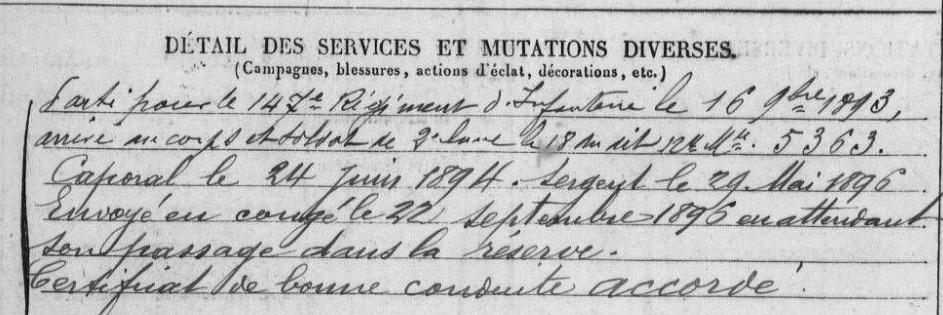 DÉTAIL DES SERVICES ET MUTATIONS DIVERSES.
(Campagnes, blessures, actions d'éclat, décorations, etc.)
Parti pour le 147e Régiment d'Infanterie le 16 9bre 1893,
arrivé au corps et soldat de 2e classe le 18 du dit No Mle. 5363.
Caporal le 24 Juin 1894. Sergent le 29 Mai 1896
Envoyé en congé le 22 septembre 1896 en attendant
son passage dans la réserve.
Certificat de bonne conduite accordé